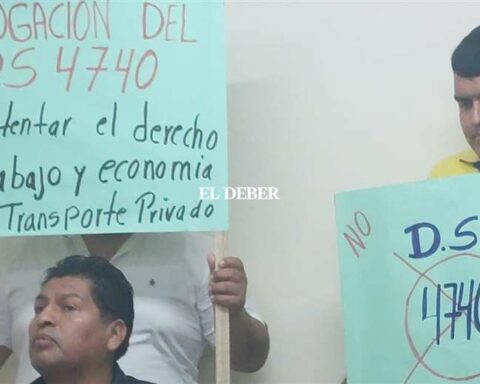 OGACIÓN DEL
DS 4740
tentar el derecho
abajo y economia
Transporte Privado
EL DEBER
NO
D.S
4740